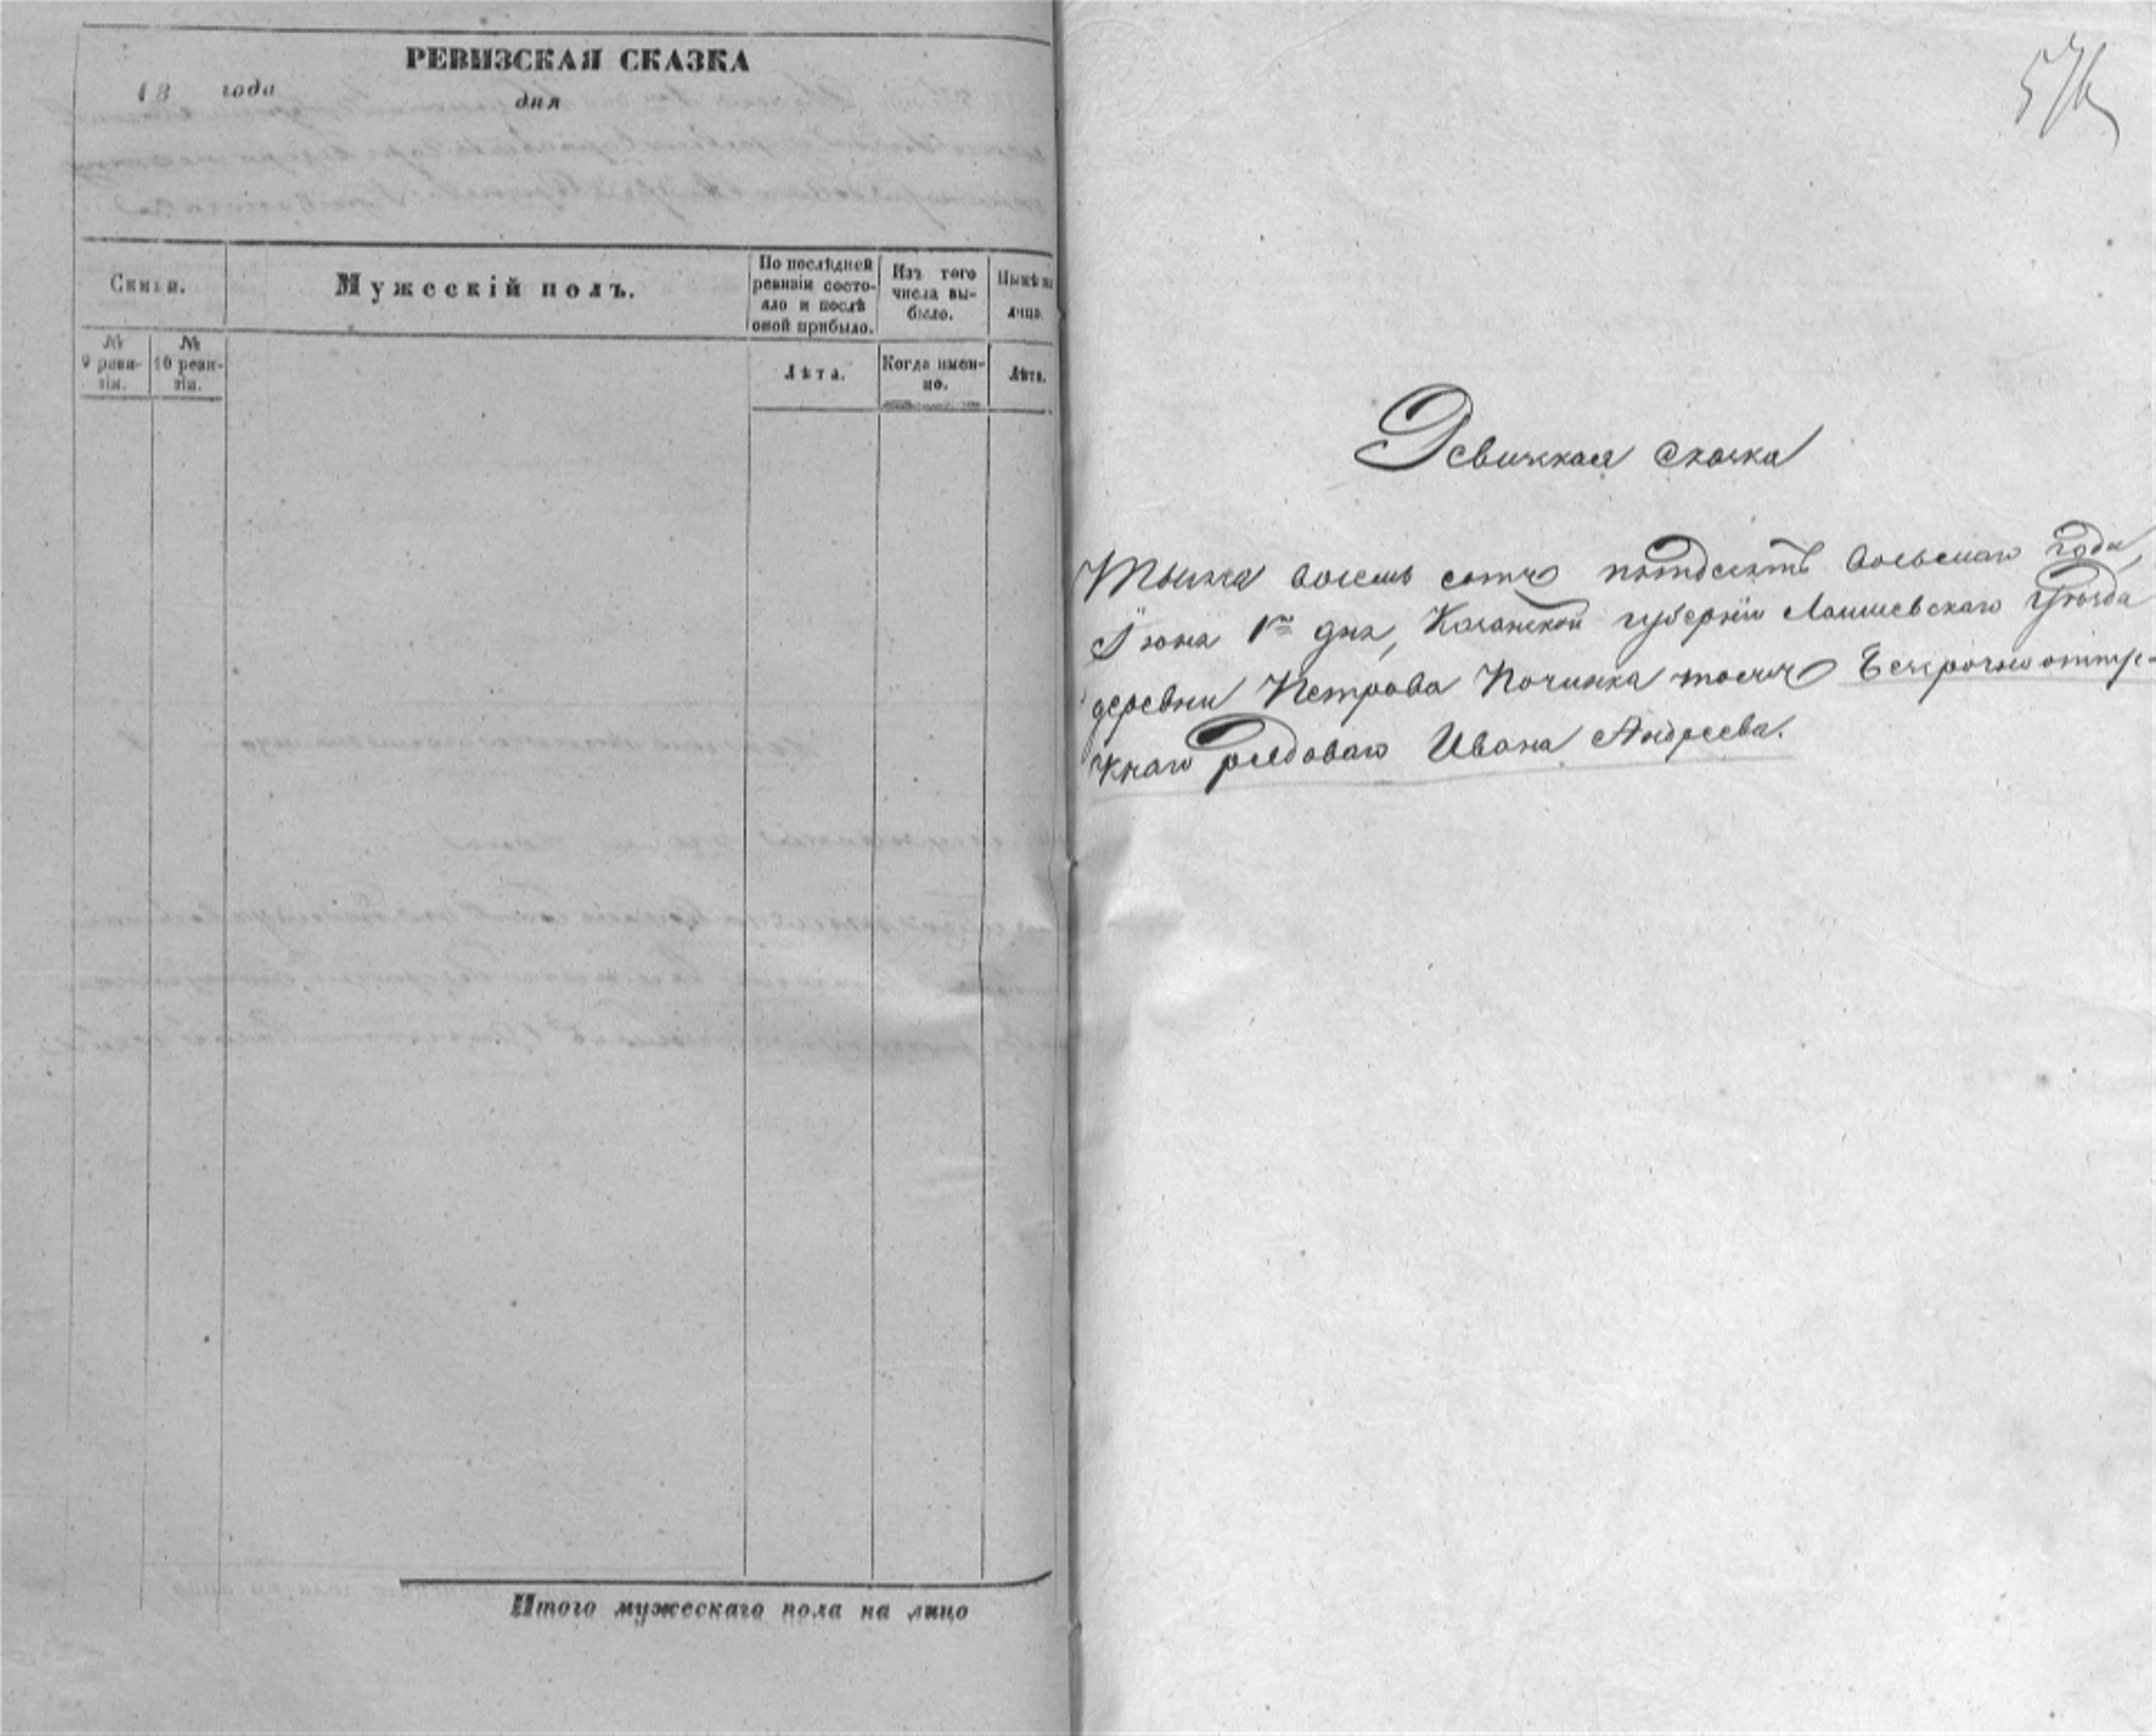 РЕВИЗСКАЯ СКАЗКА
18 года
дня
Семьи.
Мужескій полъ.
По послѣдней
ревизіи состо-
яло и послѣ
оной прибыло.
Изъ того
числа вы-
было.
Нынѣ на
лицо.
№
9 реви-
зіи.
№
10 реви-
зіи.
Лѣта.
Когда имен-
но.
Лѣта.
Итого мужескаго пола на лицо
576
Ревижкая скаска
Тысяча восемь сотъ пятдесятъ восьмаго года,
Іюня 1го дня, Казанской губерніи Лаишевскаго Уѣзда
деревни Петрова Починка тожъ безсрочно отпу-
скнаго рядоваго Ивана Андреева.